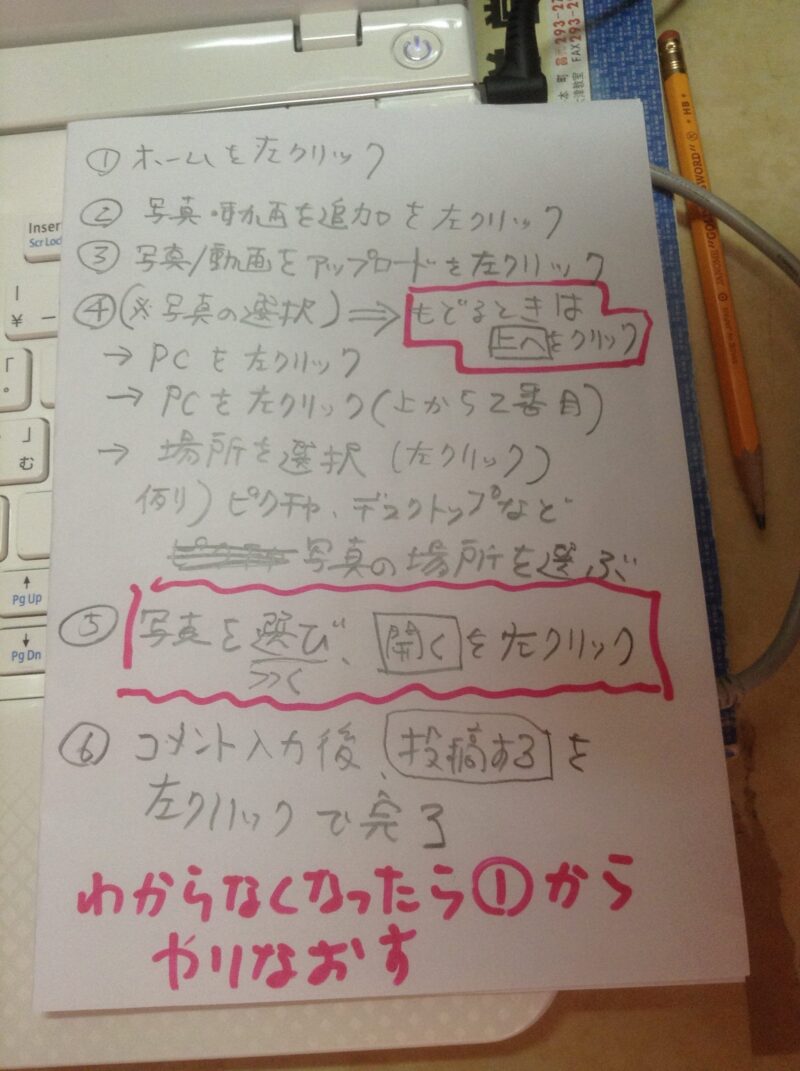 ① ホームを左クリック
② 写真・動画を追加を左クリック
③ 写真/動画をアップロードを左クリック
④(※写真の選択)⇒ もどるときは
上へをクリック
→ PCを左クリック
→ PCを左クリック(上から2番目)
→ 場所を選択(左クリック)
例)ピクチャ、デスクトップなど
写真の場所を選ぶ
⑤ 写真を選び、開くを左クリック
⑥ コメント入力後、投稿するを
左クリックで完了
わからなくなったら①から
やりなおす
Inser
Scr Lock
ー
¥
「
°
」
む
↑
Pg Up
↓
Pg Dn
本町
FAX293-2
HB